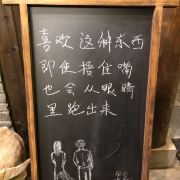 喜欢这件东西
即使捂住嘴
也会从眼睛
里跑出来